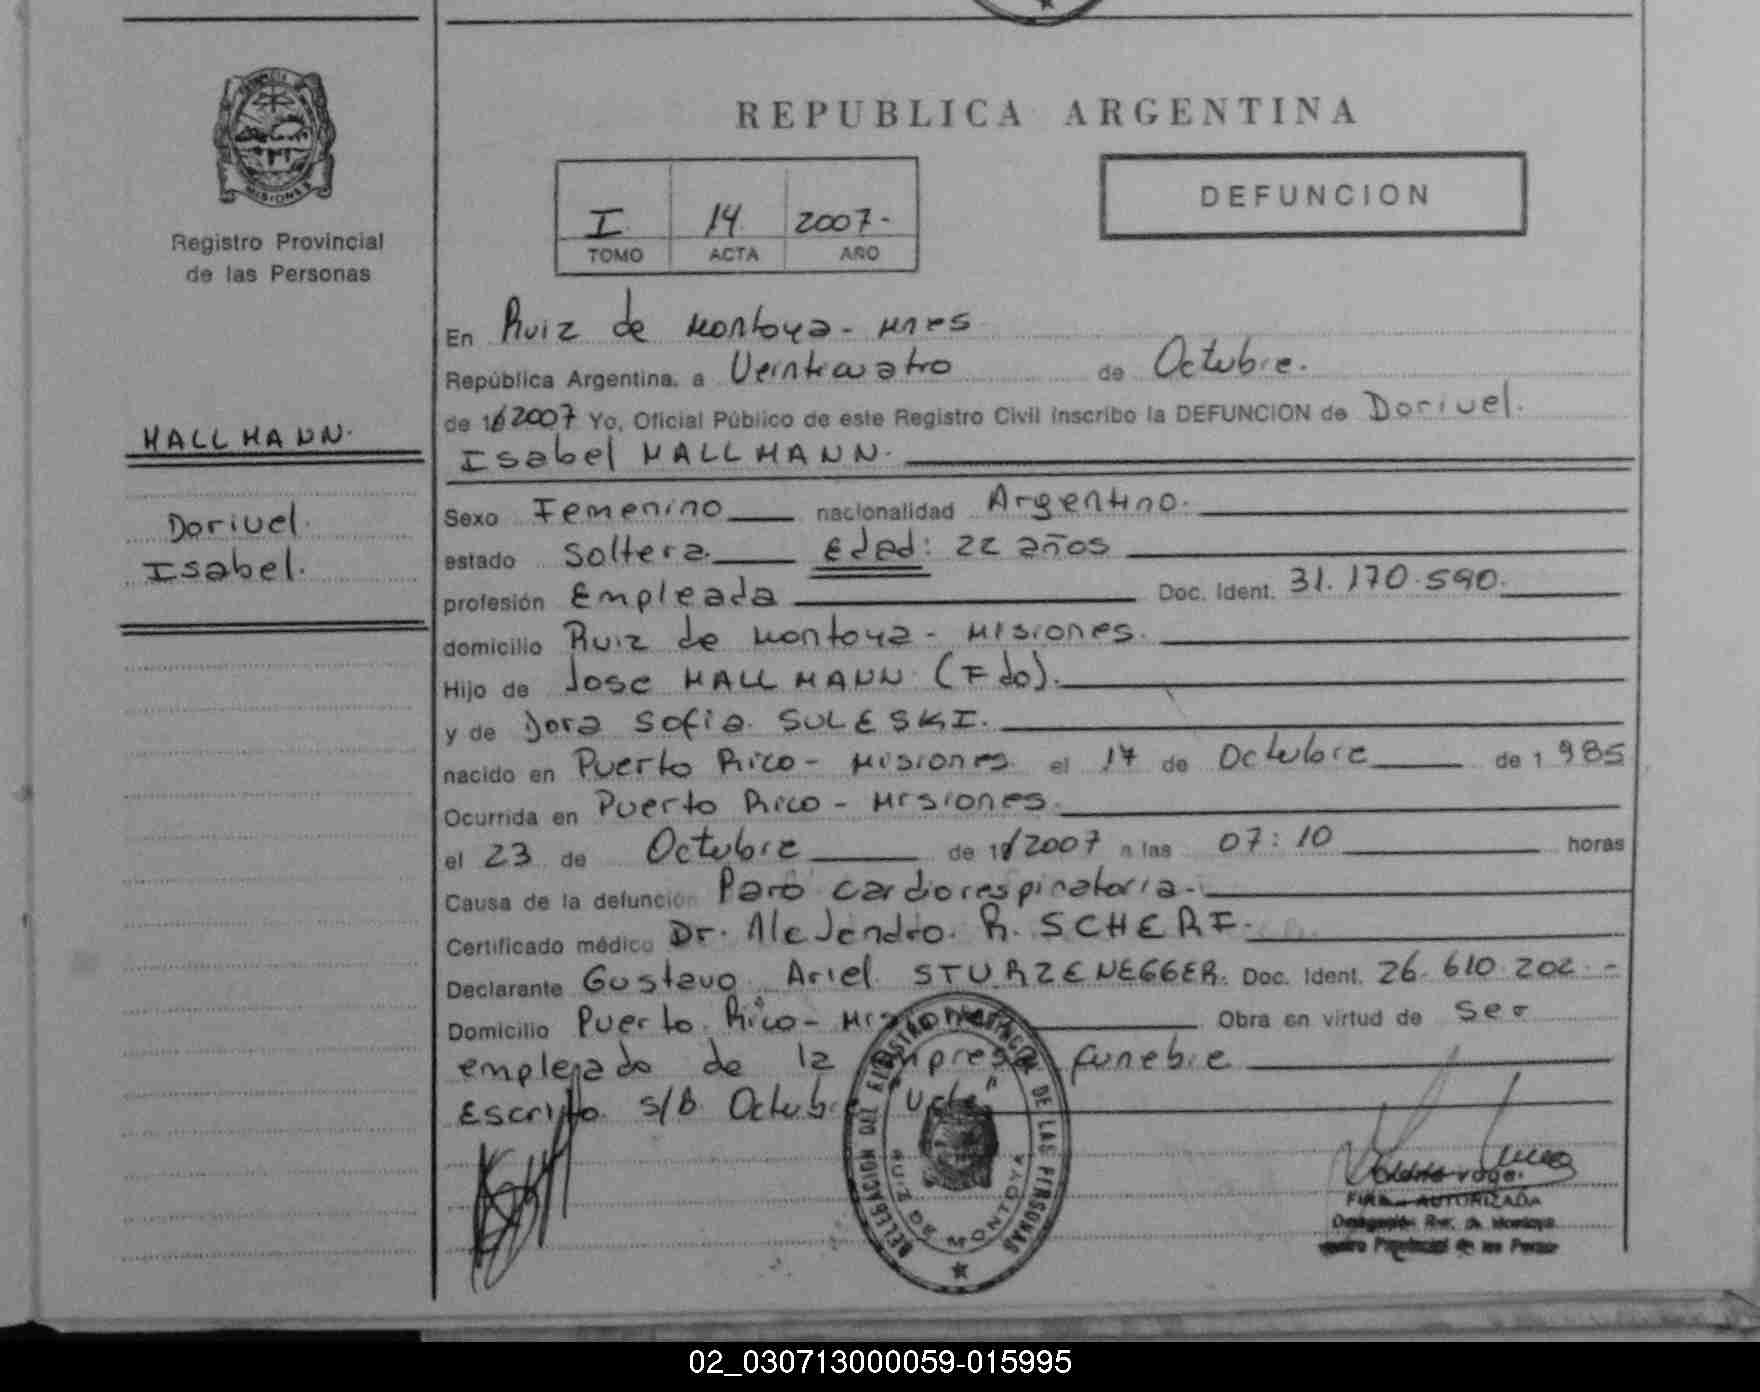 REPUBLICA ARGENTINA
PROVINCIA
MISIONES
Registro Provincial
de las Personas
I. 14. 2007-
TOMO ACTA AÑO
DEFUNCION
En Ruiz de Montoya - Mnes
República Argentina, a Veinticuatro de Octubre.
de 2007 Yo, Oficial Público de este Registro Civil inscribo la DEFUNCION de Dorivel.
Isabel HALLMANN.
HALLMANN.
Dorivel.
Isabel.
Sexo Femenino nacionalidad Argentino.
estado Soltera. Edad: 22 años
profesión Empleada Doc. Ident. 31.170.590.
domicilio Ruiz de Montoya - Misiones.
Hijo de Jose HALLMANN (Fdo).
y de Dora Sofia SULESKI.
nacido en Puerto Rico - Misiones el 17 de Octubre de 1985
Ocurrida en Puerto Rico - Misiones.
el 23 de Octubre de 2007 a las 07:10 horas
Causa de la defunción Paro cardiorespiratoria.-
Certificado médico Dr. Alejandro. R. SCHERF.
Declarante Gustavo Ariel STURZENEGGER. Doc. Ident. 26.610.202.-
Domicilio Puerto Rico - Obra en virtud de Ser
empleado de la empresa funebre
Escrito s/B Octubre
DELEGACION DEL REGISTRO PROVINCIAL DE LAS PERSONAS
RUIZ DE MONTOYA
FIRMA AUTORIZADA
Delegación Ruiz de Montoya
Registro Provincial de las Personas
02_030713000059-015995